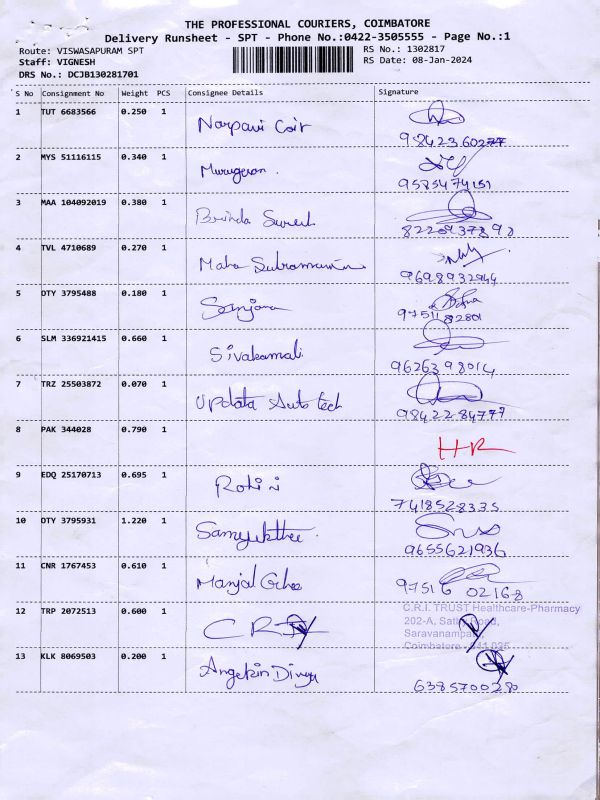 THE PROFESSIONAL COURIERS, COIMBATORE
Delivery Runsheet - SPT - Phone No.:0422-3505555 - Page No.:1
Route: VISWASAPURAM SPT RS No.: 1302817
Staff: VIGNESH RS Date: 08-Jan-2024
DRS No.: DCJB130281701
S No Consignment No Weight PCS Consignee Details Signature
1 TUT 6683566 0.250 1 Narpavi Coir
9842360277
2 MYS 51116115 0.340 1 Murugesan
9585474151
3 MAA 104092019 0.380 1 Brinda Suresh
4 TVL 4710689 0.270 1 Maha Subramanian
9698932944
5 OTY 3795488 0.180 1 Sanjana
9751182801
6 SLM 336921415 0.660 1 Sivakamali
9626398014
7 TRZ 25503872 0.070 1 Updata Auto tech
9842284777
8 PAK 344028 0.790 1 HR
9 EDQ 25170713 0.695 1 Rohini
7418528335
10 OTY 3795931 1.220 1 Samyukthee
9655621936
11 CNR 1767453 0.610 1 Manjal Grhee
97516 02168
C.R.I. TRUST Healthcare-Pharmacy
12 TRP 2072513 0.600 1 CRI 202-A, Sathy Road,
Saravanampatti,
Coimbatore - 641 035
13 KLK 8069503 0.200 1 Angelin Divya
6385700280